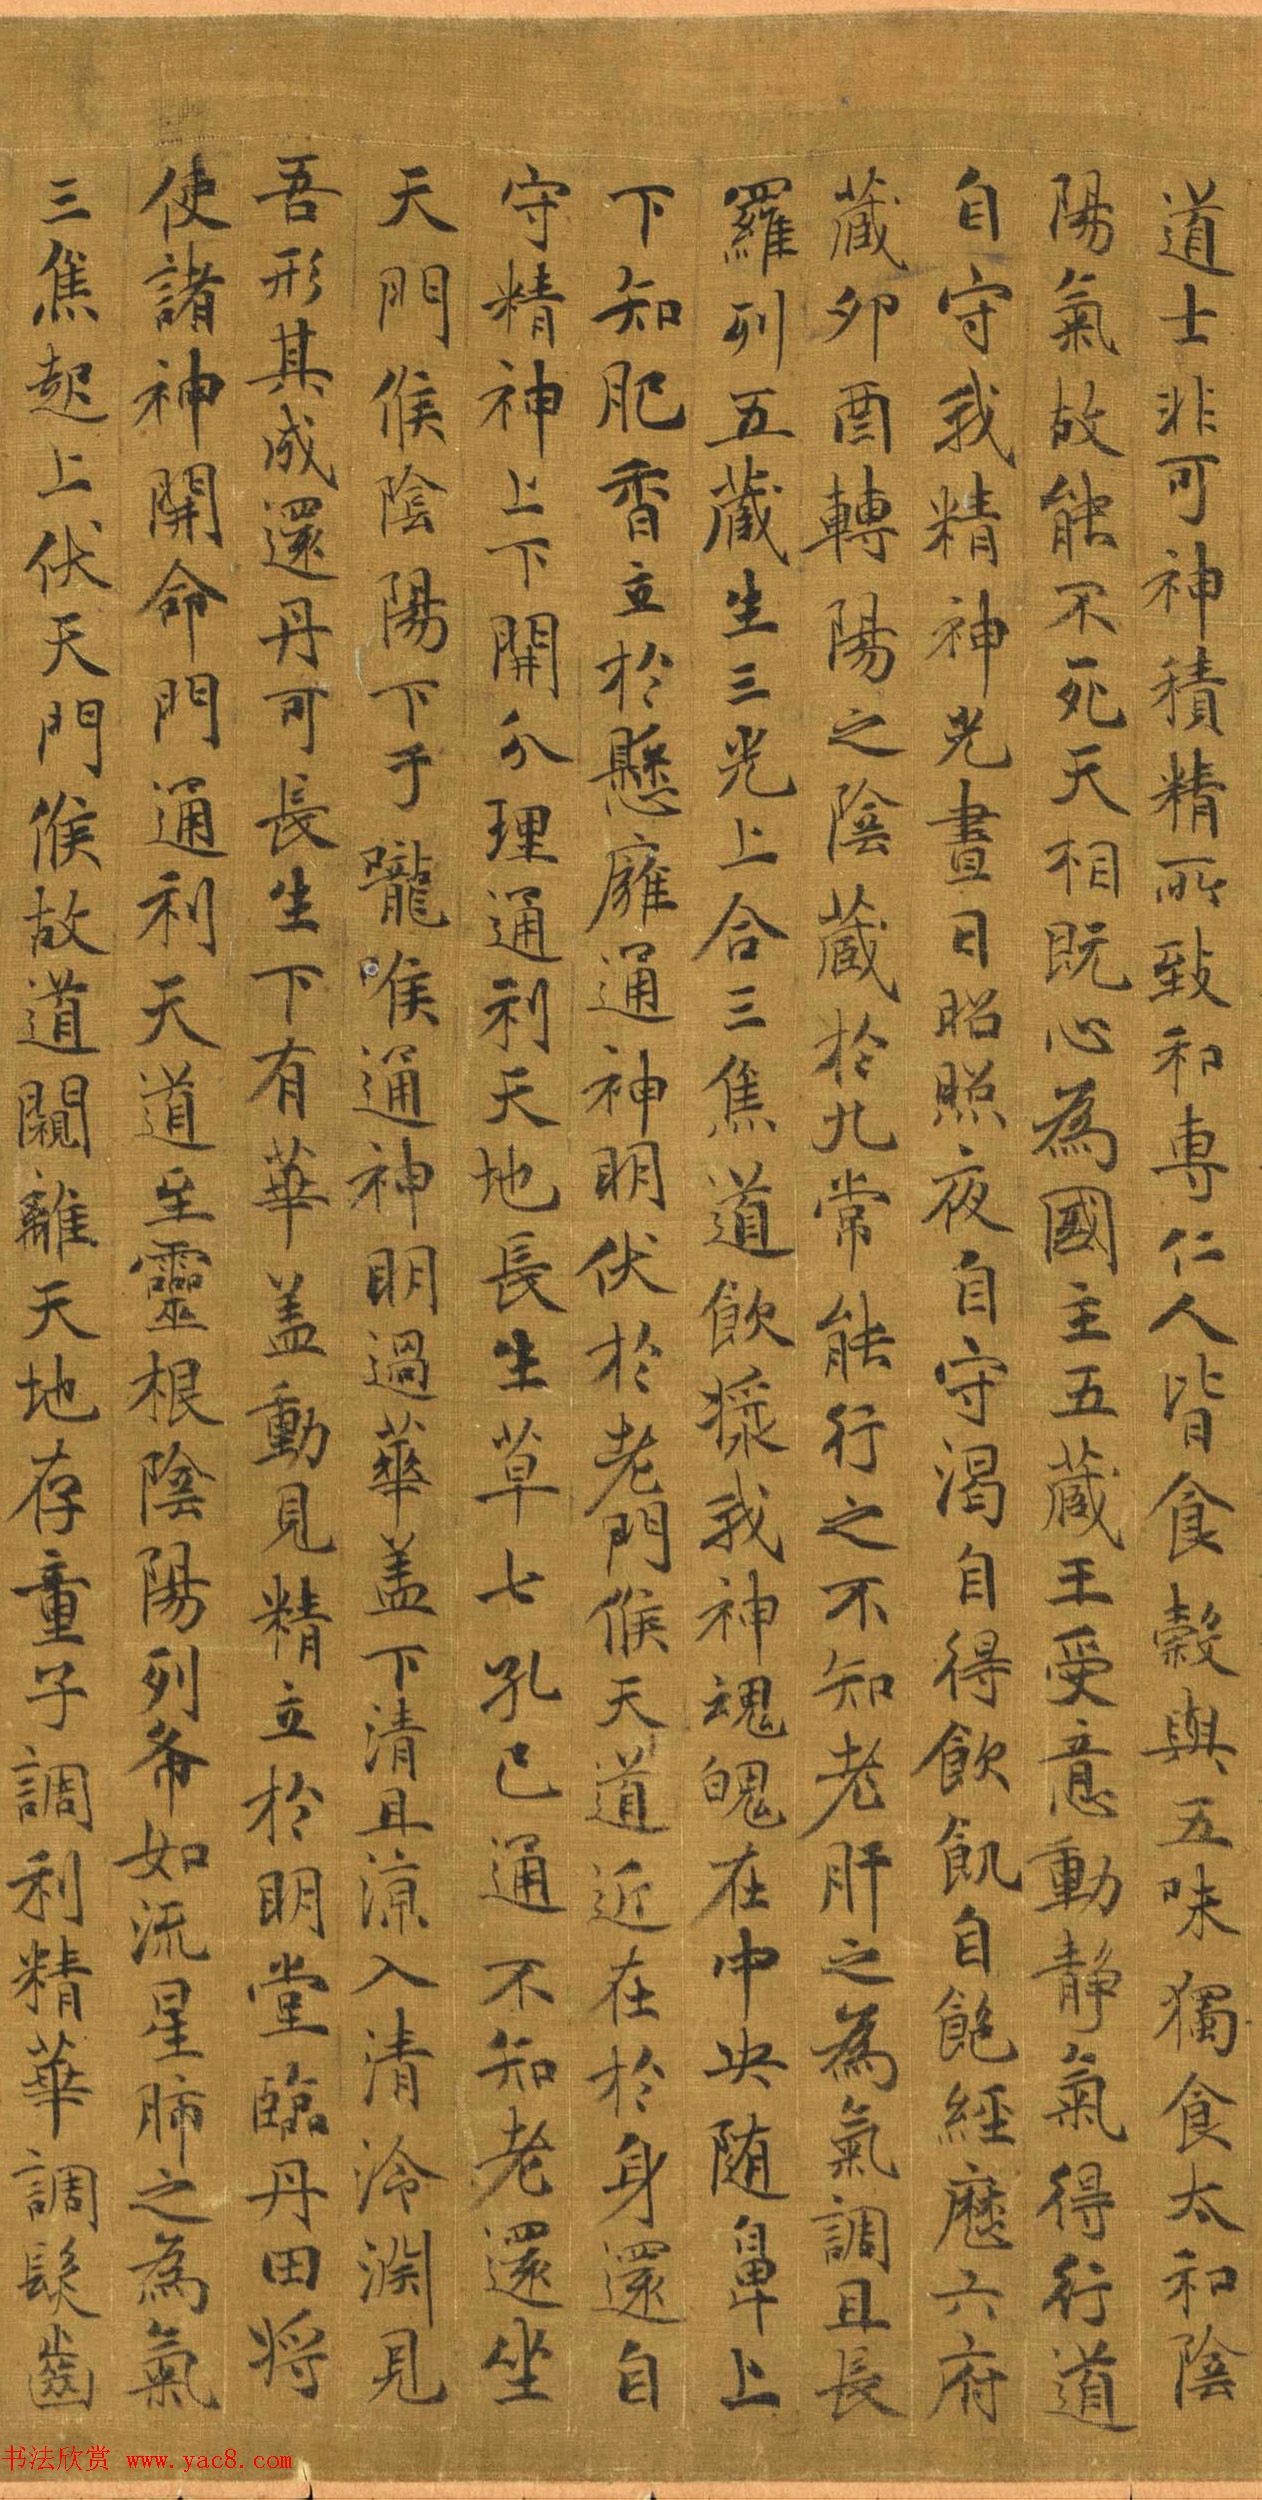 道士非可神積精所致和專仁人皆食穀與五味獨食太和陰
陽氣故能不死天相既心為國主五藏王受意動静氣得行道
自守我精神光晝日昭照夜自守渴自得飲飢自飽經歷六府
藏卯酉轉陽之陰藏於九常能行之不知老肝之為氣調且長
羅列五藏生三光上合三焦道飲漿我神魂魄在中央随鼻上
下知肥香立於懸廱通神明伏於老門候天道近在於身還自
守精神上下開分理通利天地長生草七孔已通不知老還坐
天門候陰陽下于嚨喉通神明過華盖下清且涼入清泠淵見
吾形其成還丹可長生下有華盖動見精立於明堂臨丹田将
使諸神開命門通利天道至靈根陰陽列布如流星肺之為氣
三焦起上伏天門候故道闚離天地存童子調利精華調髮齒
书法欣赏 www.yac8.com